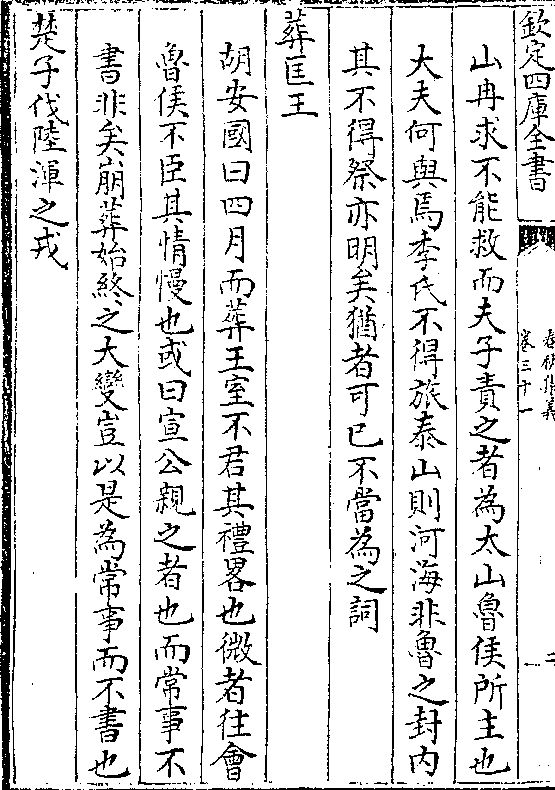 欽定四庫全書
卷三十一
山冉求不能救而夫子責之者為太山魯侯所主也
大夫何與焉季氏不得旅泰山則河海非魯之封内
其不得祭亦明矣猶者可已不當為之詞
葬匡王
胡安國曰四月而葬王室不君其禮畧也微者往會
魯侯不臣其情慢也或曰宣公親之者也而常事不
書非矣崩葬始終之大變豈以是為常事而不書也
楚子伐陸渾之戎